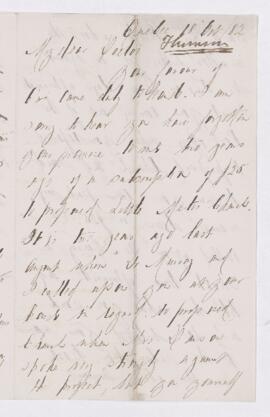 Quebec 18 Oct 82
My dear Doctor
Your favour of
came duly to hand. I am
sorry to hear you have forgotten
your promise two years
ago of a subscription of $25
to proposed Little Metis Church.
It is two years ago last
August when Dr Murray and
I called upon you at your
house in regard to proposed
church when Mrs
spoke very strongly against
the project, but you yourself